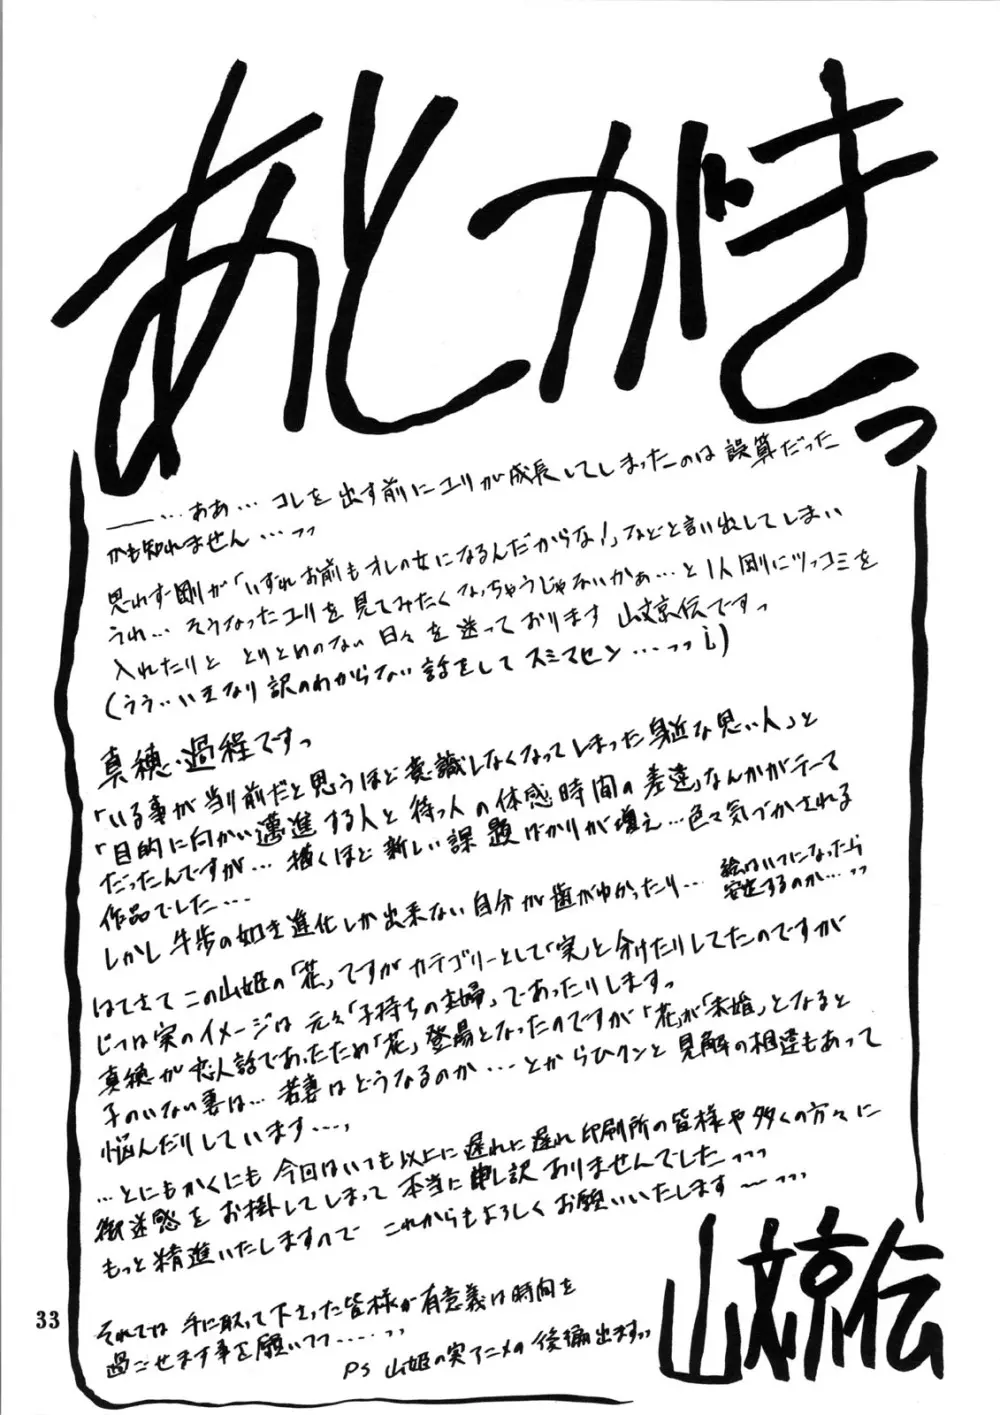 あとがきっ
――…ああ…コレを出す前にユリが成長してしまったのは誤算だった
かも知れません…っっ
思わず剛が「いずれお前もオレの女になるんだからな!」などと言い出してしまい
うれ…そうなったユリを見てみたくなっちゃうじゃないかぁ…と1人剛にツッコミを
入れたりと とりとめのない日々を送っております山文京伝ですっ
(うう…いきなり訳のわからない話をしてスミマセン…っっ;)
真穂・過程ですっ
「いる事が当り前だと思うほど意識しなくなってしまった身近な思い人」と
「目的に向かい邁進する人と待つ人の体感時間の差違」なんかがテーマ
だったんですが…描くほど新しい課題ばかりが増え…色々気づかされる
作品でした…
しかし牛歩の如き進化しか出来ない自分が歯がゆかったり…
絵はいつになったら
安定するのか…っっ
はてさてこの山姫の「花」ですがカテゴリーとして「実」と分けたりしてたのですが
じつは実のイメージは元々「子持ちの主婦」であったりしますっ
真穂が恋人話であったため「花」登場となったのですが「花」が「未婚」となると
子のいない妻は…若妻はどうなるのか…とからひクンと見解の相違もあって
悩んだりしています…っ
…とにもかくにも今回はいつも以上に遅れに遅れ印刷所の皆様や多くの方々に
御迷惑をお掛してしまって本当に申し訳ありませんでしたーっっっ
もっと精進いたしますので これからもよろしくお願いいたします〜っっっ
それでは手に取って下さった皆様が有意義な時間を
過ごせます事を願いつつ……っっ
PS 山姫の実アニメの後編出ますっっ
山文京伝
33